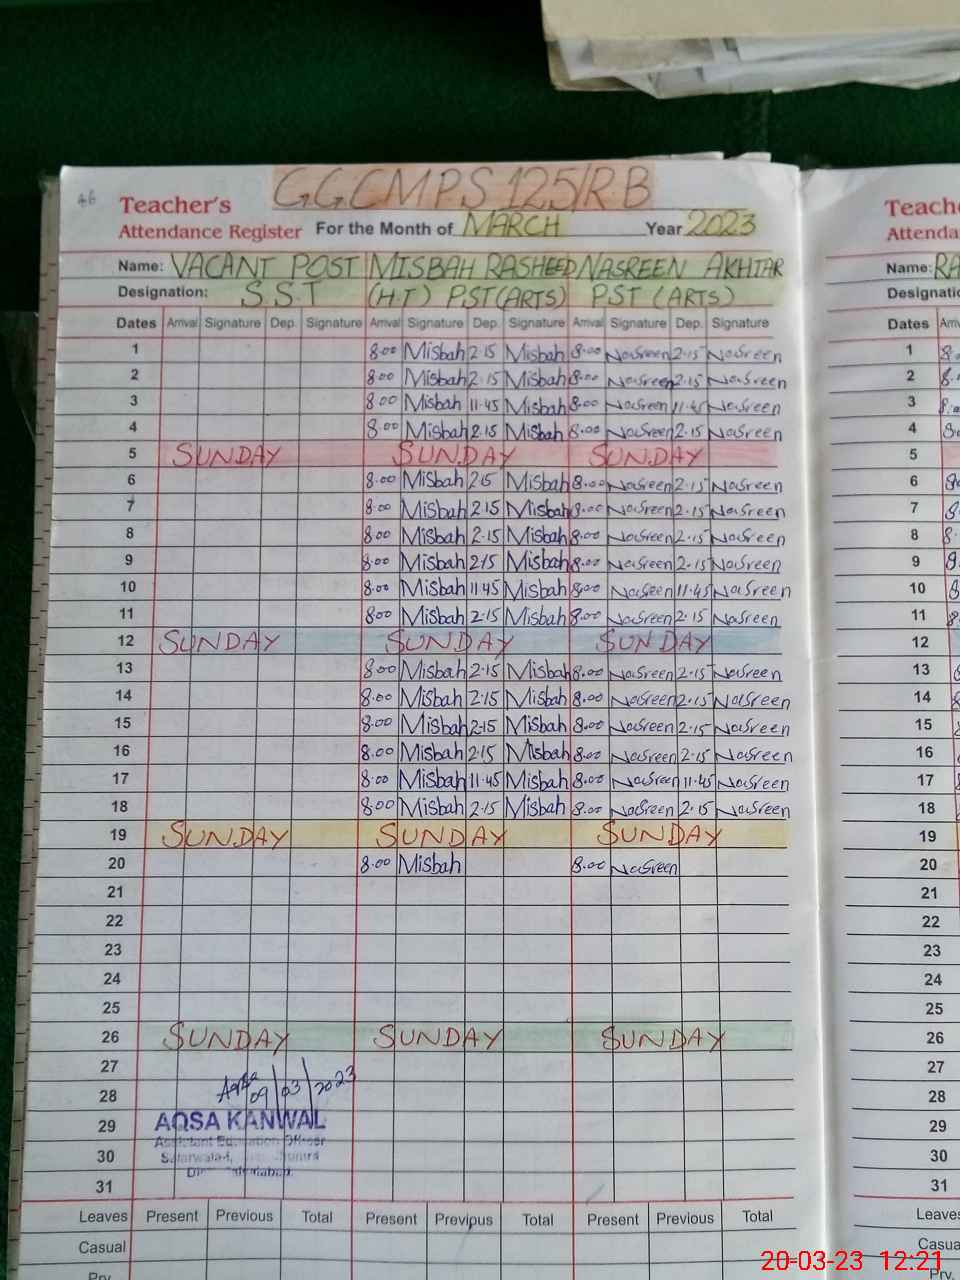 46
GGCMPS 125/RB
Teacher's
Attendance Register For the Month of MARCH Year 2023
Name: VACANT POST MISBAH RASHEED NASREEN AKHTAR
Designation: S.S.T (H.T) PST(ARTS) PST (ARTS)
Dates Arrival Signature Dep. Signature Arrival Signature Dep. Signature Arrival Signature Dep. Signature
1 8.00 Misbah 2.15 Misbah 8.00 Nasreen 2.15 Nasreen
2 8.00 Misbah 2.15 Misbah 8.00 Nasreen 2.15 Nasreen
3 8.00 Misbah 11.45 Misbah 8.00 Nasreen 11.45 Nasreen
4 8.00 Misbah 2.15 Misbah 8.00 Nasreen 2.15 Nasreen
5 SUNDAY SUNDAY SUNDAY
6 8.00 Misbah 2.15 Misbah 8.00 Nasreen 2.15 Nasreen
7 8.00 Misbah 2.15 Misbah 8.00 Nasreen 2.15 Nasreen
8 8.00 Misbah 2.15 Misbah 8.00 Nasreen 2.15 Nasreen
9 8.00 Misbah 2.15 Misbah 8.00 Nasreen 2.15 Nasreen
10 8.00 Misbah 11.45 Misbah 8.00 Nasreen 11.45 Nasreen
11 8.00 Misbah 2.15 Misbah 8.00 Nasreen 2.15 Nasreen
12 SUNDAY SUNDAY SUNDAY
13 8.00 Misbah 2.15 Misbah 8.00 Nasreen 2.15 Nasreen
14 8.00 Misbah 2.15 Misbah 8.00 Nasreen 2.15 Nasreen
15 8.00 Misbah 2.15 Misbah 8.00 Nasreen 2.15 Nasreen
16 8.00 Misbah 2.15 Misbah 8.00 Nasreen 2.15 Nasreen
17 8.00 Misbah 11.45 Misbah 8.00 Nasreen 11.45 Nasreen
18 8.00 Misbah 2.15 Misbah 8.00 Nasreen 2.15 Nasreen
19 SUNDAY SUNDAY SUNDAY
20 8.00 Misbah 8.00 Nasreen
21
22
23
24
25
26 SUNDAY SUNDAY SUNDAY
27
28 09/03/2023
29 AQSA KANWAL
Assistant Education Officer
30
31
Leaves Present Previous Total Present Previous Total Present Previous Total
Casual
Prv.
Name: RA
Dates
1
2
3
4
5
6
7
8
9
10
11
12
13
14
15
16
17
18
19
20
21
22
23
24
25
26
27
28
29
30
31
Casual
Prv.
20-03-23 12:21